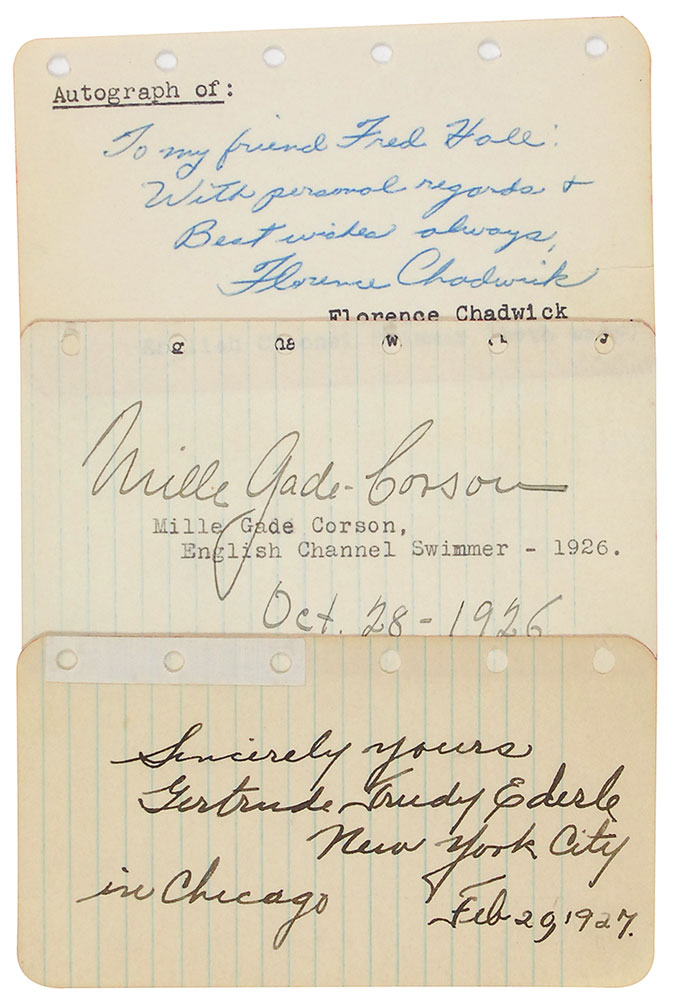 Autograph of:
To my friend Fred Hall:
With personal regards &
Best wishes always,
Florence Chadwick
Florence Chadwick
Mille Gade-Corson
Mille Gade Corson,
English Channel Swimmer - 1926.
Oct. 28-1926
Sincerely yours
Gertrude Trudy Ederle
New York City
in Chicago
Feb 20, 1927.